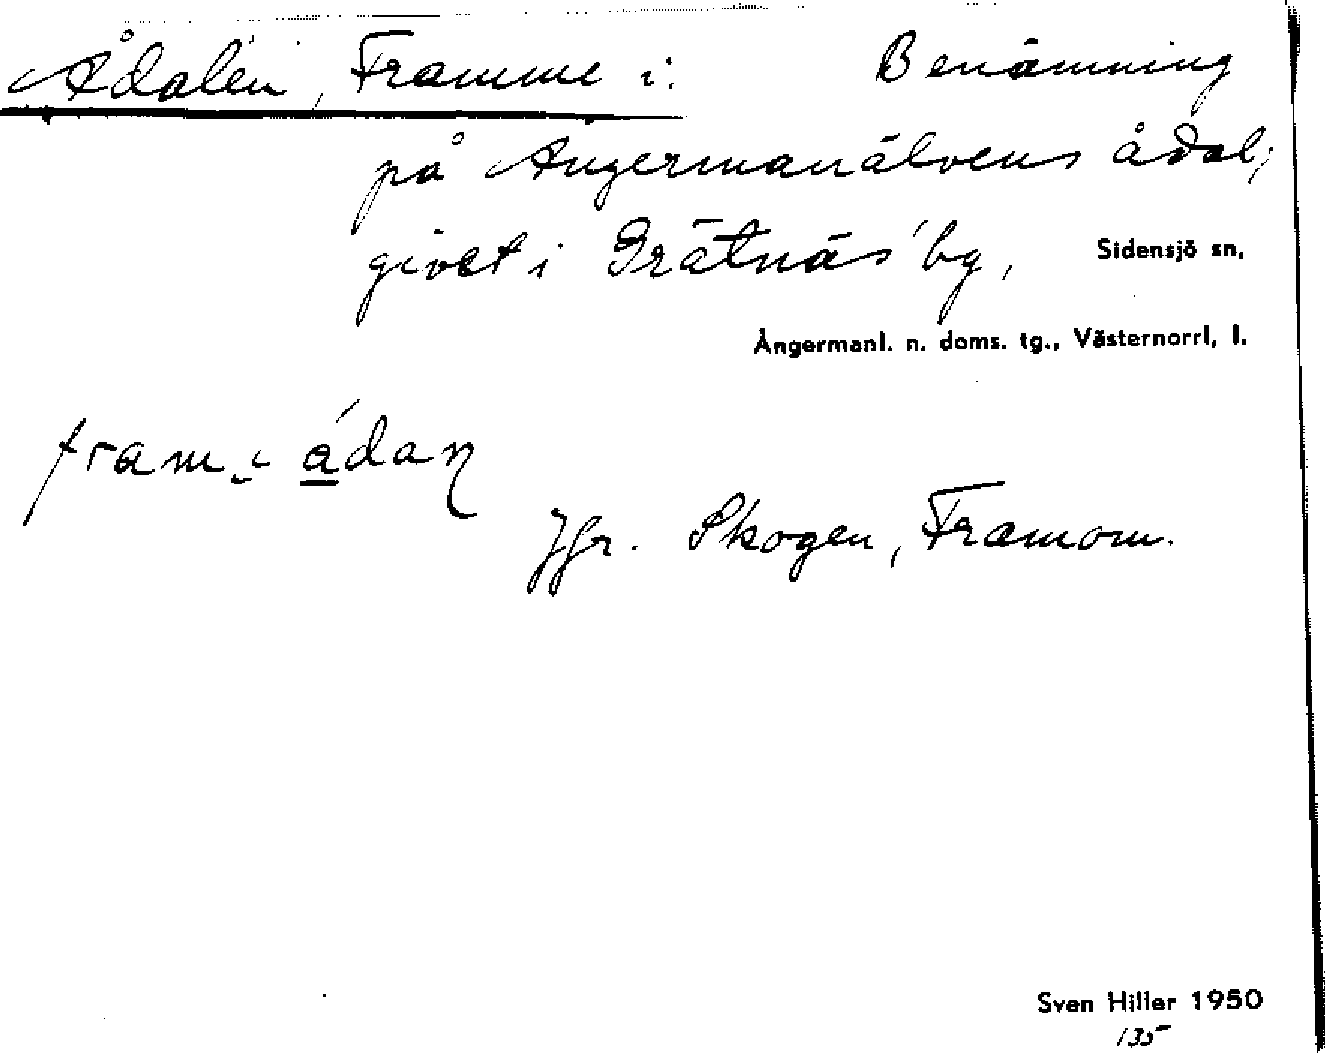 Ådalen, Framme i. Benämning
på Ångermanälvens ådal,
givet i Grätnäs by, Sidensjö sn,
Ångermanl. n. doms. tg., Västernorrl, l.
Jfr. Skogen, Framom.
Sven Hiller 1950
135